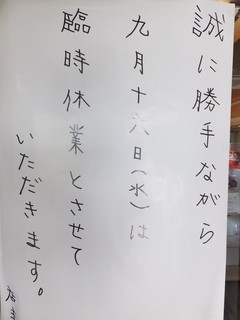 誠に勝手ながら
九月十六日(水)は
臨時休業とさせて
いただきます。
店主